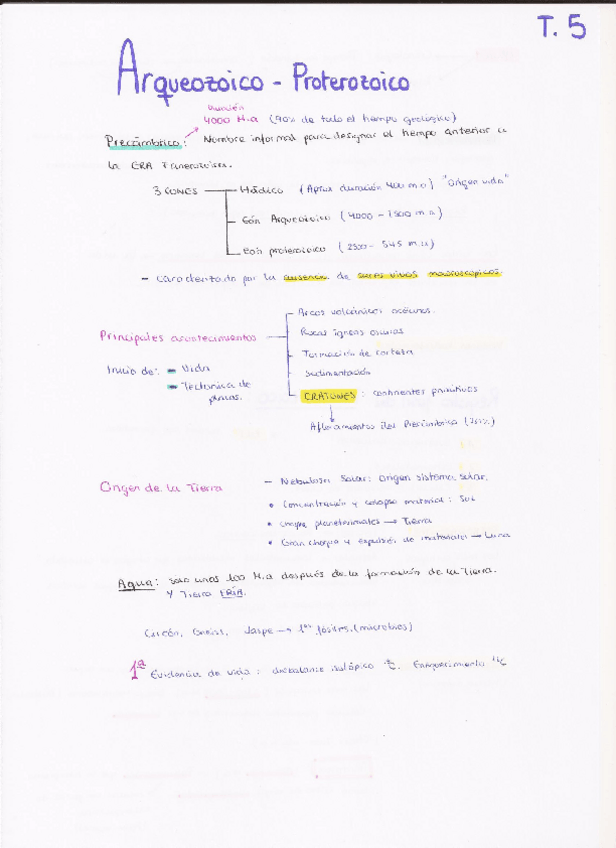 T. 5
Arqueozoico - Proterozoico
Duración
4000 M.a (90% de todo el tiempo geológico)
Precámbrico: Nombre informal para designar el tiempo anterior a
la ERA Fanerozoica.
3 EONES
Hádico (Aprox duración 400 m.a) "Origen vida"
Eón Arqueozoico (4000 - 2500 m.a)
Eón proterozoico (2500 - 545 m.a)
- Caracterizado por la ausencia de seres vivos macroscópicos.
Principales acontecimientos
Arcos volcánicos océanos.
Rocas ígneas oscuras
Formación de corteza
Sedimentación
CRATONES: continentes primitivos
Afloramientos del Precámbrico
Inicio de: - Vida
- Tectónica de
placas.
Origen de la Tierra
- Nebulosa Solar: origen sistema solar.
• Concentración y colapso material: Sol
• choque planetesimales → Tierra
• Gran choque y expulsión de materiales → Luna
Agua: solo unos 100 M.a después de la formación de la Tierra.
y Tierra FRÍA.
Circón, Gneiss, Jaspe → 1os fósiles (microbios)
1ª Evidencia de vida: disbalance isotópico Enriquecimiento